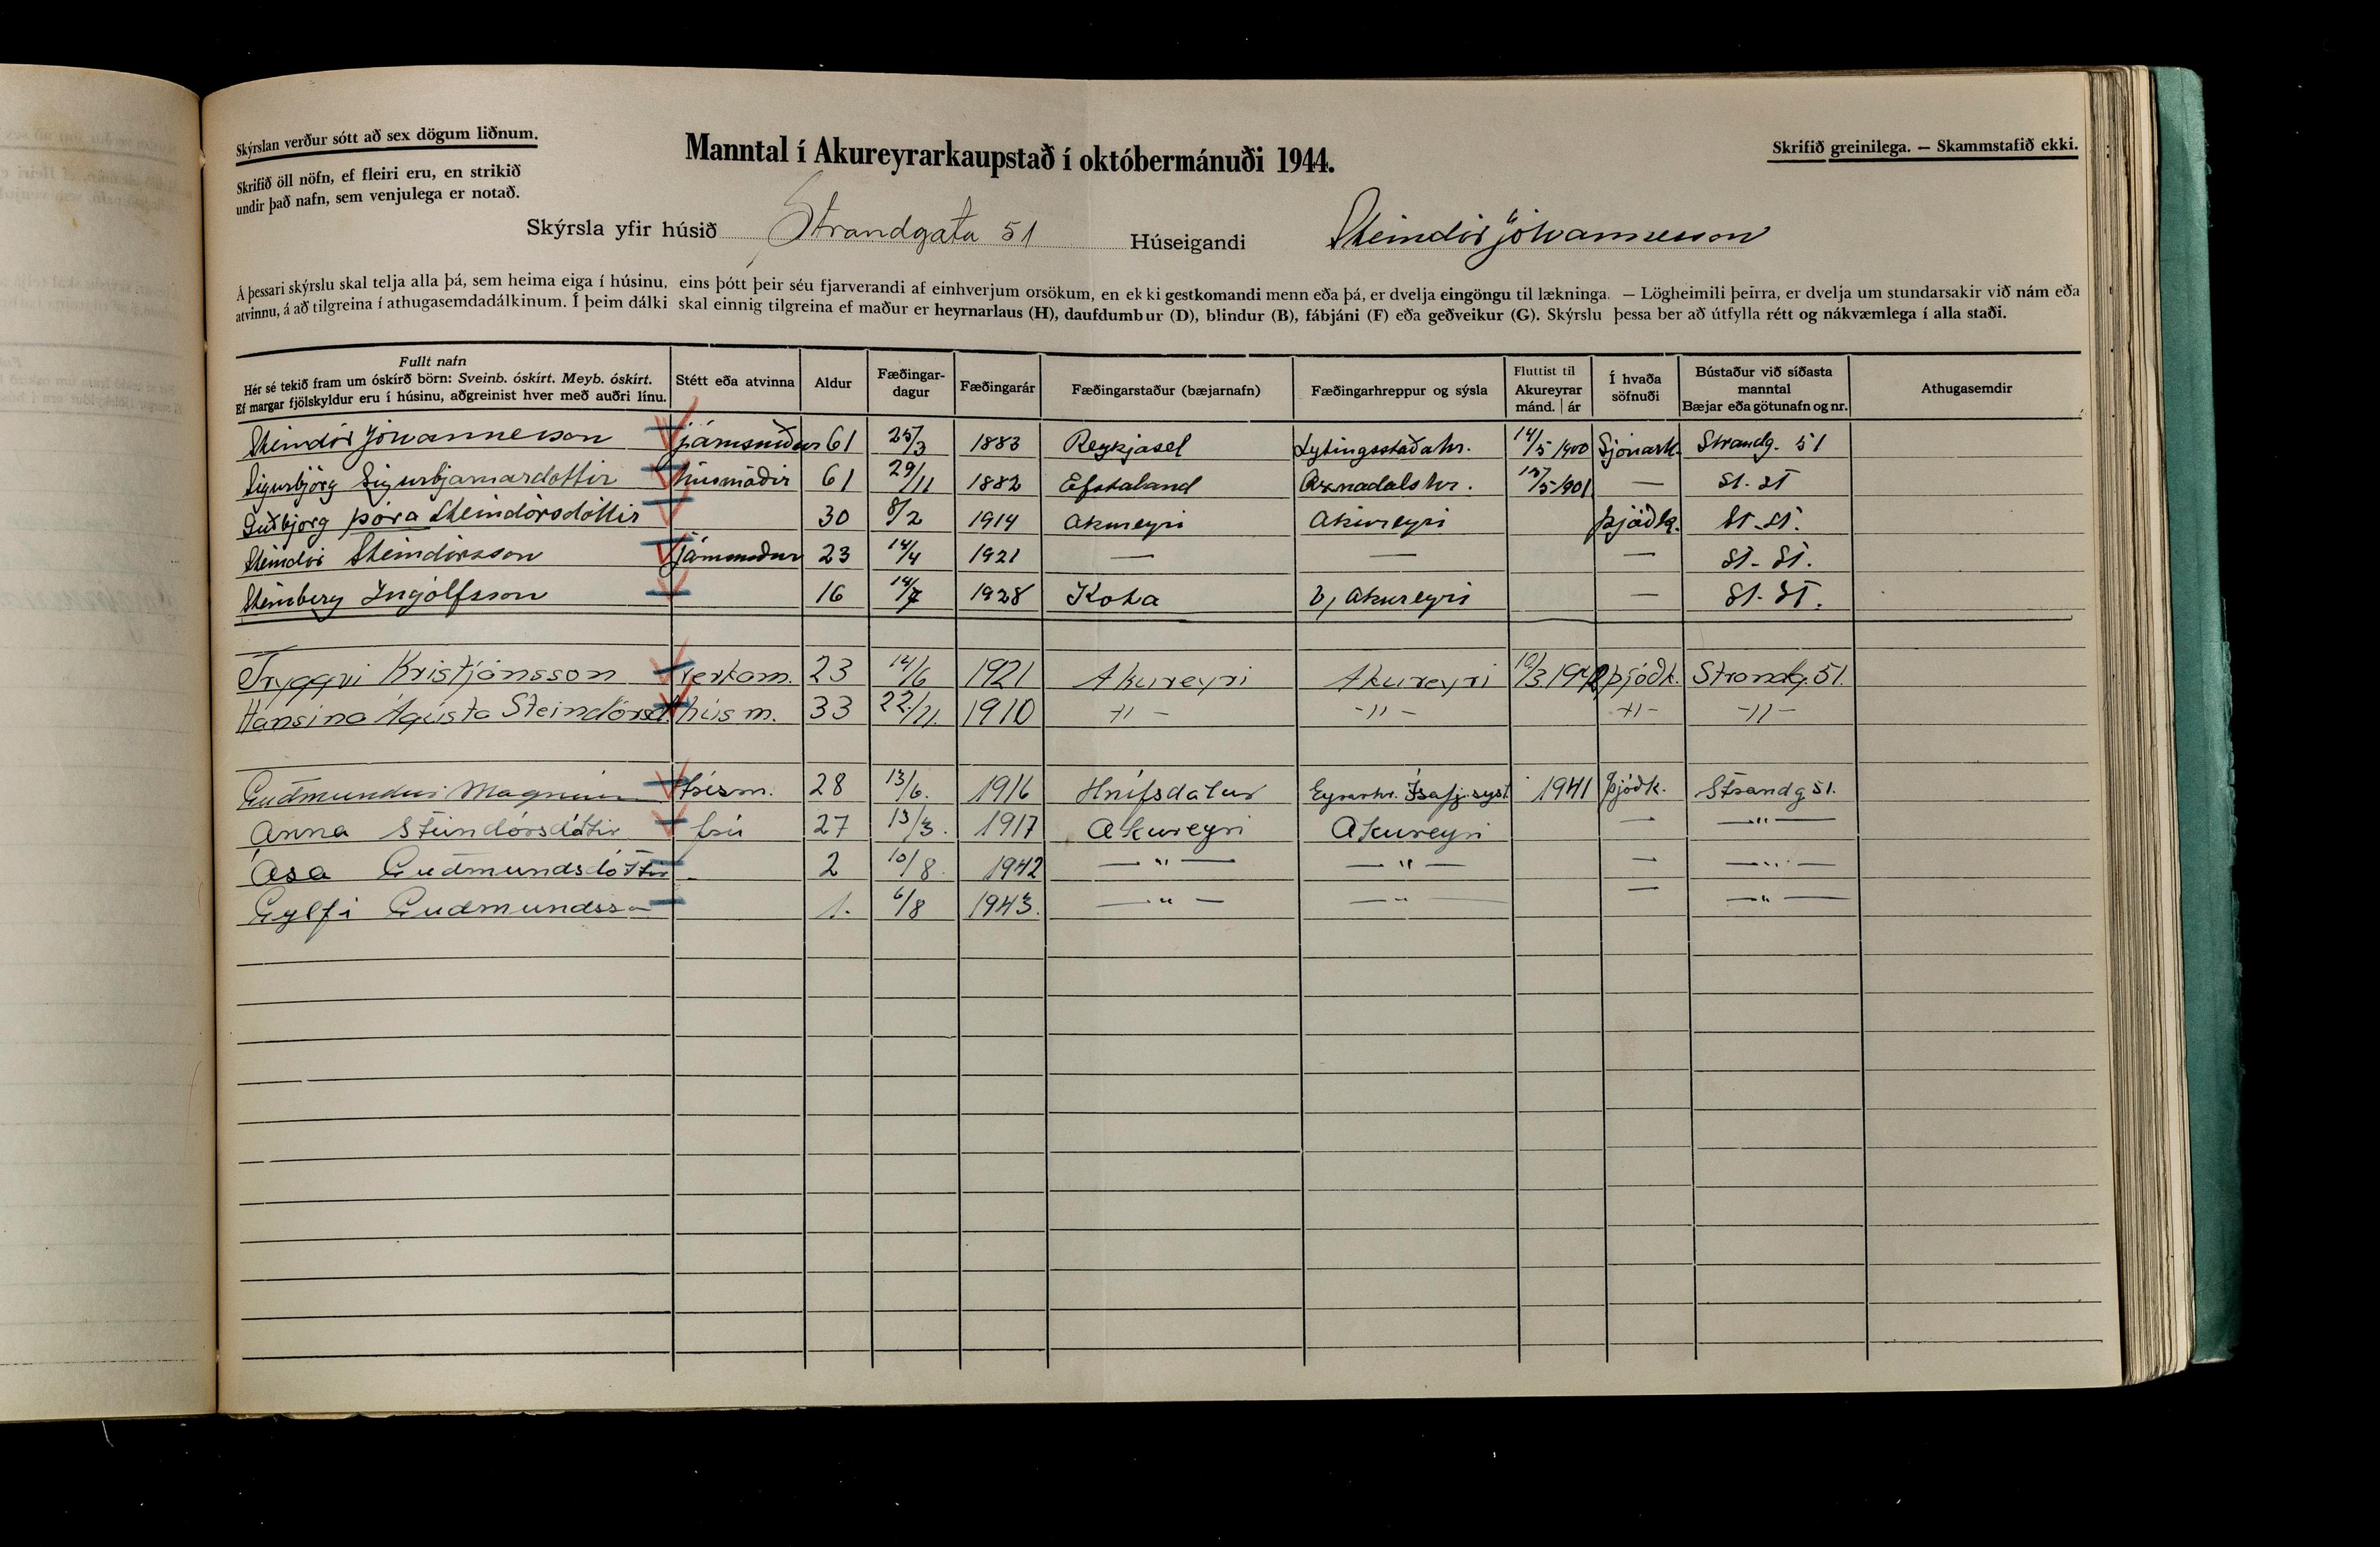 Skýrslan verður sótt að sex dögum liðnum.
Skrifið öll nöfn, ef fleiri eru, en strikið
undir það nafn, sem venjulega er notað.
Manntal í Akureyrarkaupstað í októbermánuði 1944.
Skrifið greinilega. — Skammstafið ekki.
Skýrsla yfir húsið Strandgata 51 Húseigandi Steindór Jóhannesson
Á þessari skýrslu skal telja alla þá, sem heima eiga í húsinu, eins þótt þeir séu fjarverandi af einhverjum orsökum, en ekki gestkomandi menn eða þá, er dvelja eingöngu til lækninga. — Lögheimili þeirra, er dvelja um stundarsakir við nám eða
atvinnu, á að tilgreina í athugasemdadálkinum. Í þeim dálki skal einnig tilgreina ef maður er heyrnarlaus (H), daufdumbur (D), blindur (B), fábjáni (F) eða geðveikur (G). Skýrslu þessa ber að útfylla rétt og nákvæmlega í alla staði.
Fullt nafn
Hér sé tekið fram um óskírð börn: Sveinb. óskírt. Meyb. óskírt.
Ef margar fjölskyldur eru í húsinu, aðgreinist hver með auðri línu.
Stétt eða atvinna
Aldur
Fæðingar-
dagur
Fæðingarár
Fæðingarstaður (bæjarnafn)
Fæðingarhreppur og sýsla
Fluttist til
Akureyrar
mánd. | ár
Í hvaða
söfnuði
Bústaður við síðasta
manntal
Bæjar eða götunafn og nr.
Athugasemdir
Steindór Jóhannesson járnsmiður 61 25/3 1883 Reykjasel Lytingsstaðahr. 14/5 1900 Sjónarh. Strandg. 51
Sigurbjörg Sigurbjarnardottir húsmóðir 61 29/11 1882 Efstaland Öxnadalshr. /5 1901 — St. 51
Guðbjörg þóra Steindórsdóttir 30 8/2 1914 Akureyri Akureyri þjóðk. St. 51.
Steindór Steindórsson járnsmiður 23 14/4 1921 — — — St. 51.
Steinberg Ingólfsson 16 14/7 1928 Kota v, Akureyri — St. 51.
Tryggvi Kristjánsson verkam. 23 14/6 1921 Akureyri Akureyri 10/3 1942 þjóðk. Strandg. 51.
Hansína Ágústa Steindórsd. húsm. 33 22/11. 1910 -11- -11- -11- -11-
Guðmundur Magnús trésm. 28 13/6. 1916 Hnífsdalur Eyrarhr. Ísafj.sysl. 1941 Þjóðk. Strandg 51.
Anna Steindórsdóttir frú 27 13/3. 1917 Akureyri Akureyri — — " —
Ása Guðmundsdóttir - 2 10/8. 1942 — " — — " — — — " —
Gylfi Guðmundsson 1. 6/8 1943. — " — — " — — — " —